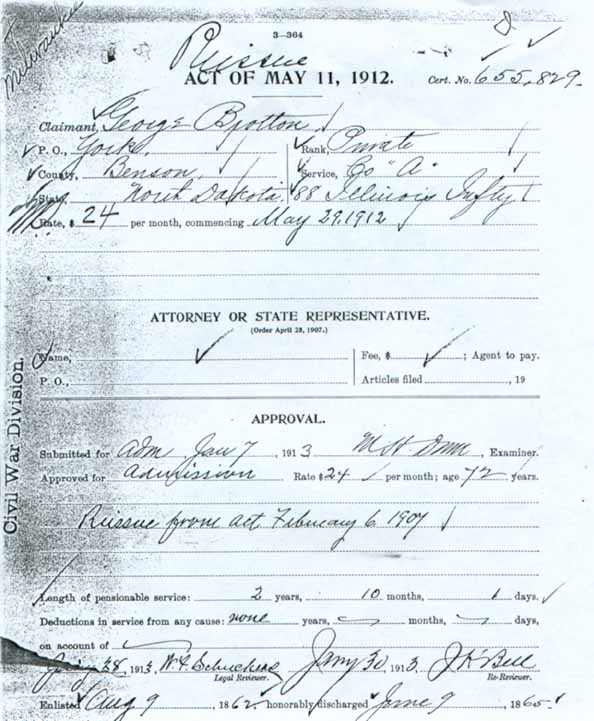 Milwaukee
3—364
Reissue
ACT OF MAY 11, 1912. Cert. No. 655,829.
Claimant, George Bjotton
P. O., York, Rank, Private
County, Benson, Service, Co "A"
State, North Dakota 88 Illinois Infty
Rate, $ 24 per month, commencing May 29, 1912
ATTORNEY OR STATE REPRESENTATIVE.
(Order April 28, 1907.)
Name, Fee, $ ; Agent to pay.
P. O., Articles filed , 19
Civil War Division.
APPROVAL.
Submitted for adm Jan 7, 1913 , Examiner.
Approved for admission Rate $ 24 per month; age 72 years.
Reissue from act February 6, 1907
Length of pensionable service: 2 years, 10 months, 1 days.
Deductions in service from any cause: none years, months, days,
on account of
28, 1913, Jany 30, 1913 J K Bell
Legal Reviewer. Re-Reviewer.
Enlisted Aug 9 1862, honorably discharged June 9 1865.